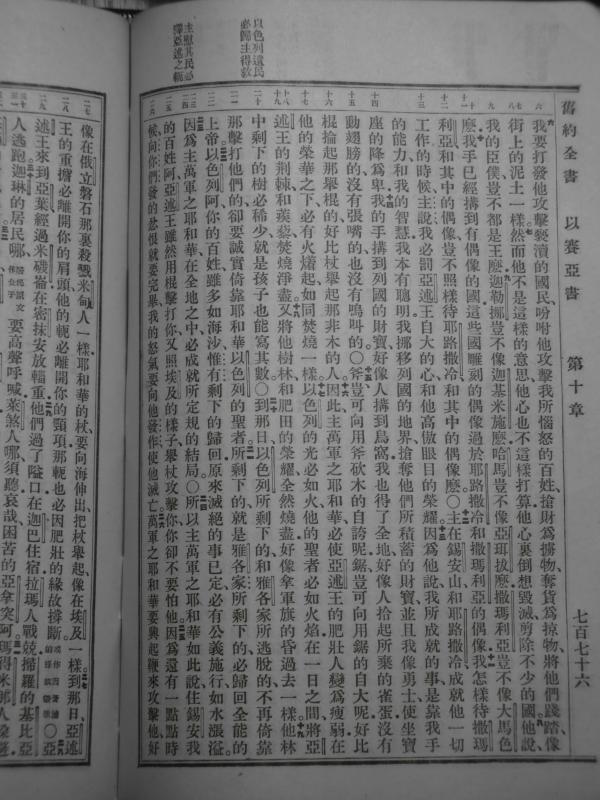 舊約全書 以賽亞書 第十章 七百七十六
以色列遺民
必歸主得救
主慰其民必
釋亞述之軛
我要打發他攻擊褻瀆的國民吩咐他攻擊我所惱怒的百姓搶財爲擄物奪貨爲掠物將他們踐踏像
街上的泥土一樣然而他不是這樣的意思他心也不這樣打算他心裏倒想毀滅剪除不少的國他說
我的臣僕豈不都是王麽迦勒挪豈不像迦基米施麽哈馬豈不像亞珥拔麽撒瑪利亞豈不像大馬色
麽我手已經搆到有偶像的國這些國雕刻的偶像過於耶路撒冷和撒瑪利亞的偶像我怎樣待撒瑪
利亞和其中的偶像豈不照樣待耶路撒冷和其中的偶像麽〇主在錫安山和耶路撒冷成就他一切
工作的時候主說我必罰亞述王自大的心和他高傲眼目的榮耀因爲他說我所成就的事是靠我手
的能力和我的智慧我本有聰明我挪移列國的地界搶奪他們所積蓄的財寶並且我像勇士使坐寶
座的降爲卑我的手搆到列國的財寶好像人搆到鳥窩我也得了全地好像人拾起所棄的雀蛋沒有
動翅膀的沒有張嘴的也沒有鳴叫的〇斧豈可向用斧砍木的自誇呢鋸豈可向用鋸的自大呢好比
棍掄起那舉棍的好比杖舉起那非木的人因此主萬軍之耶和華必使亞述王的肥壯人變爲瘦弱在
他的榮華之下必有火燼起如同焚燒一樣以色列的光必如火他的聖者必如火焰在一日之間將亞
述王的荊棘和蒺藜焚燒淨盡又將他樹林和肥田的榮耀全然燒盡好像拿軍旗的昏過去一樣他林
中剩下的樹必稀少就是孩子也能寫其數〇到那日以色列所剩下的和雅各家所逃脫的不再倚靠
那擊打他們的卻要誠實倚靠耶和華以色列的聖者所剩下的就是雅各家所剩下的必歸回全能的
上帝以色列阿你的百姓雖多如海沙惟有剩下的歸回原來滅絕的事已定必有公義施行如水漲溢
因爲主萬軍之耶和華在全地之中必成就所定規的結局〇所以主萬軍之耶和華如此說住錫安我
的百姓阿亞述王雖然用棍擊打你又照埃及的樣子舉杖攻擊你你卻不要怕他因爲還有一點點時
候向你們發的忿恨就要完畢我的怒氣要向他發作使他滅亡萬軍之耶和華要興起鞭來攻擊他好
像在俄立磐石那裏殺戮米甸人一樣耶和華的杖要向海伸出把杖舉起像在埃及一樣到那日亞述
王的重擔必離開你的肩頭他的軛必離開你的頸項那軛也必因肥壯的緣故撑斷〇亞
述王來到亞葉經過米磯崙在密抹安放輜重他們過了隘口在迦巴住宿拉瑪人戰兢掃羅的基比亞
人逃跑迦琳的居民哪要高聲呼喊萊煞人哪須聽哀哉困苦的亞拿突阿瑪得米那人